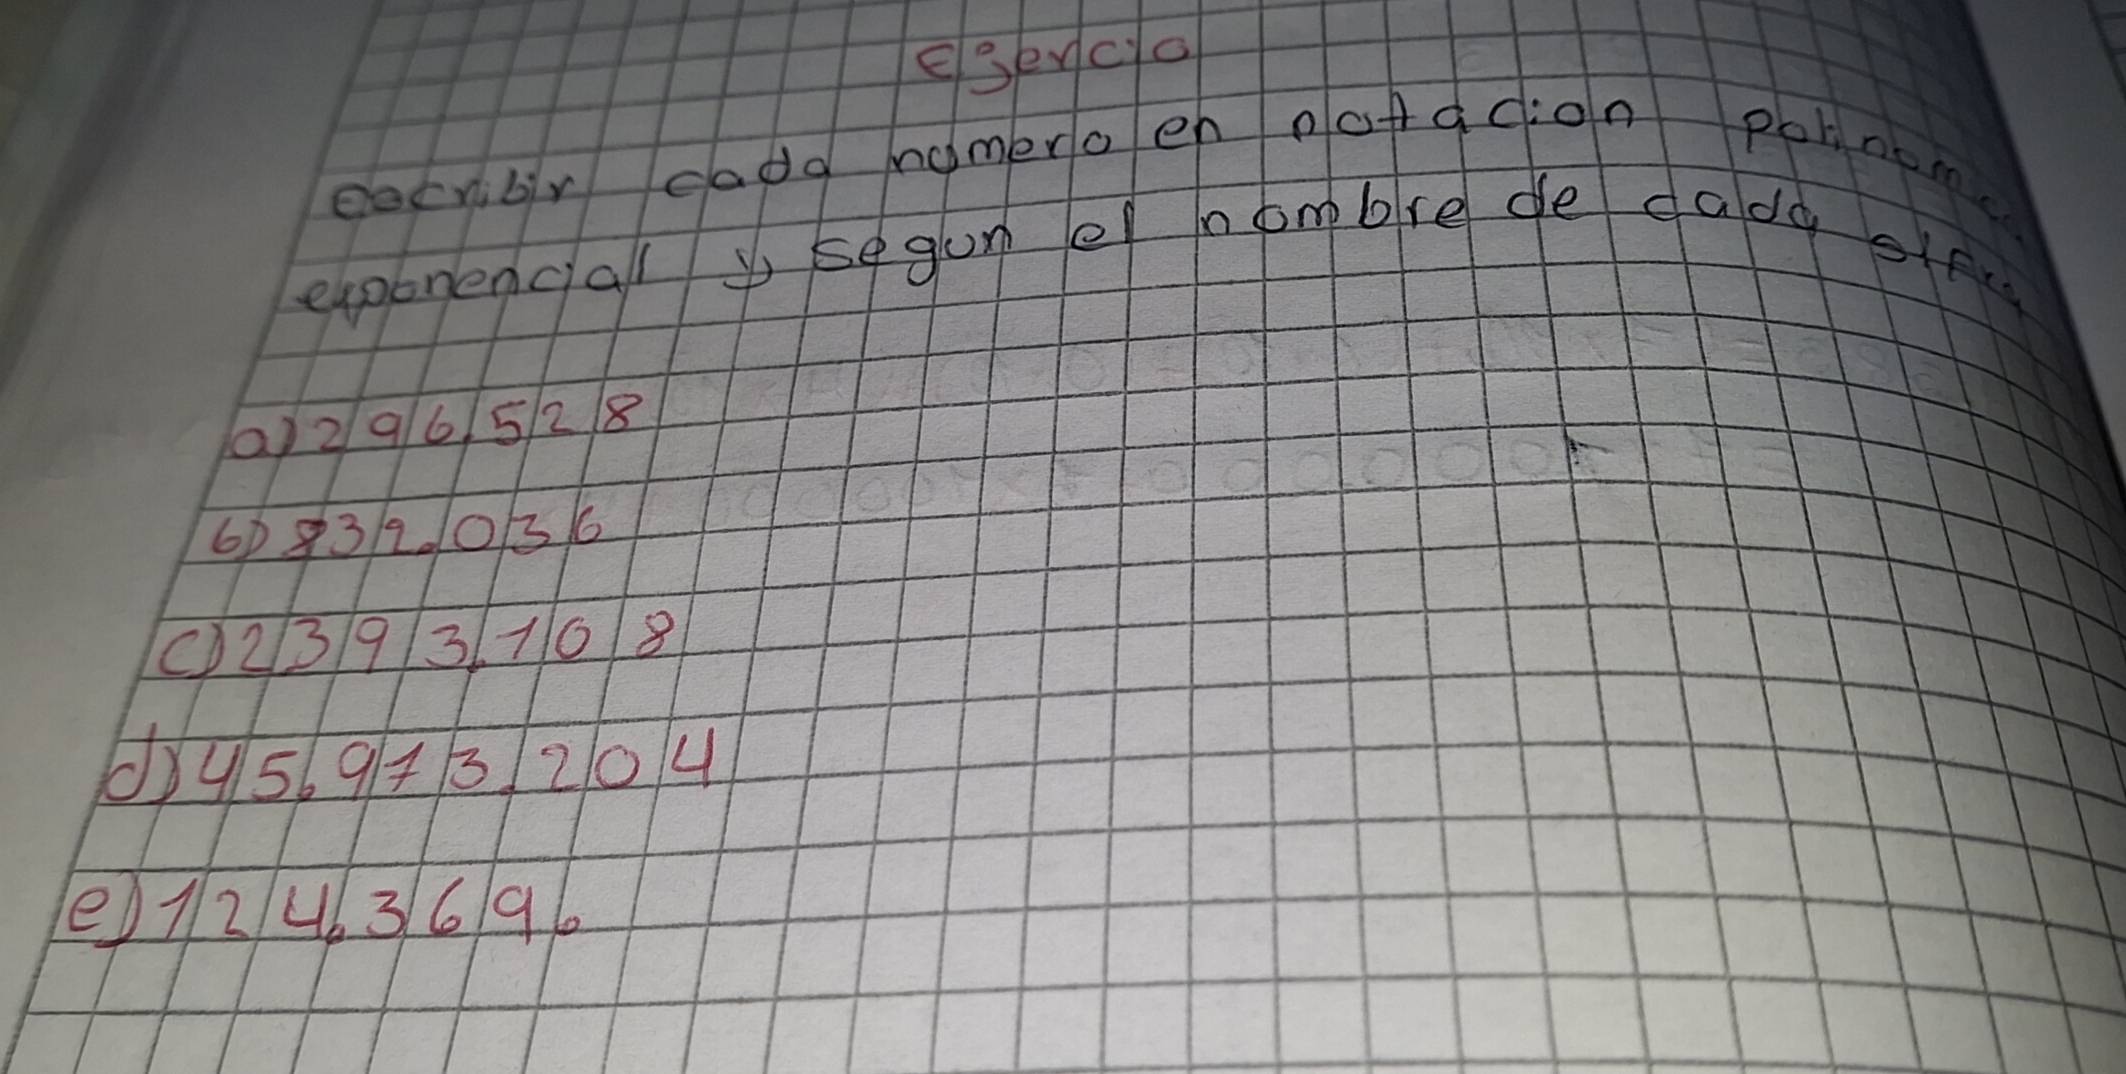 Egercio
escribir cada numero en notacion Polinomic
exponencial y segun el nombre de cada sifra
a) 296.528
b) 832.036
c) 2393.108
d) 45.973.204
e) 124.369.